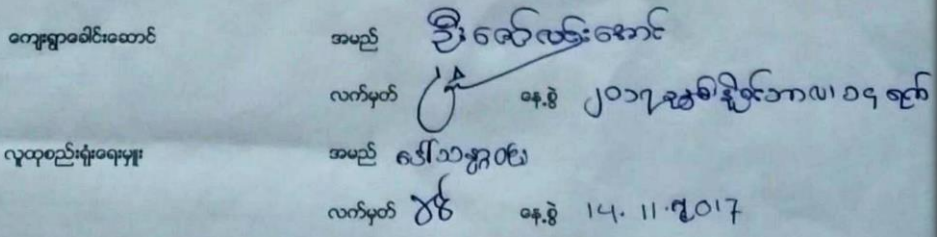 ကျေးရွာခေါင်းဆောင် အမည် ဦးဇော်လင်းအောင်
လက်မှတ် နေ့စွဲ ၂၀၁၇ ခုနှစ် နိုဝင်ဘာလ ၁၄ ရက်
လူထုစည်းရုံးရေးမှူး အမည် ဒေါ်သန္တာဝင်း
လက်မှတ် နေ့စွဲ 14.11.2017